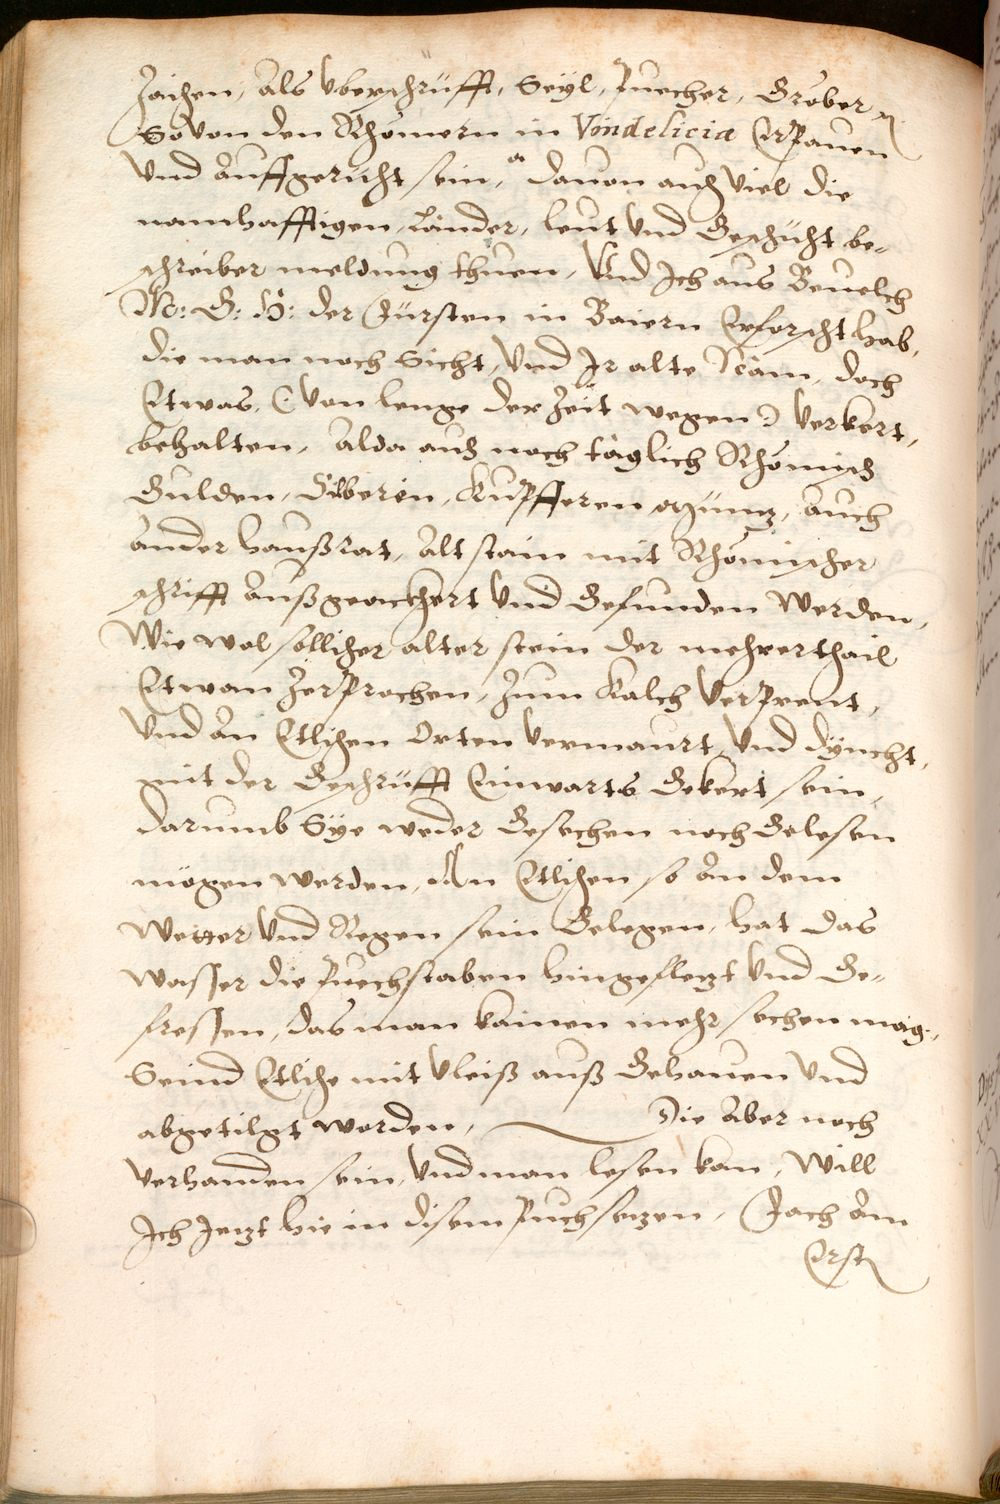 Zaichen, Als Vberschrüfft, Seÿl, Puecher, Gröber,
So Von den Rhömern in Vindelicia Erpauen
Vnd Auffgericht sein, dauon auch Viel die
namhafftigen, Länder, leut Vnd Geschicht be-
schreiber meldung thuen, Vnd Ich aus Beuelch
M: G: H: der Fürsten in Baiern Erforscht hab,
die man noch Sicht, Vnd Ir alte Näm, doch
Etwas, (: Von lenge der Zeit wegen :) Verkert,
behalten, Alda auch noch täglich Rhömisch
Gulden, Silberin, Kupfferen Müntz, Auch
ander haußrat, Alt stain mit Rhömischer
schrifft Außgeackhert Vnd Gefunden Werden,
Wie wol sollicher alter stein der mehrerthail
Etwan Zerprochen, Zum Kalch Verprent,
Vnd An Etlichen Orten Vermaurt, Vnd dÿncht,
mit der Geschrüfft Einwarts Gekert sein,
darumb Sÿe weder Gesechen noch Gelesen
mögen werden, An Etlichen so An dem
Wetter Vnd Regen sein Gelegen, hat das
Wasser die Puechstaben hingeflezt Vnd Ge-
fressen, das man kainen mehr sechen mag,
Seind Etliche mit Vleiß auß Gehauen Vnd
abgetilgt worden, Die Aber noch
Verhanden sein, Vnd man lesen kan, Will
Ich Jetzt hie in disem Puch setzen, Jach Am
Erst